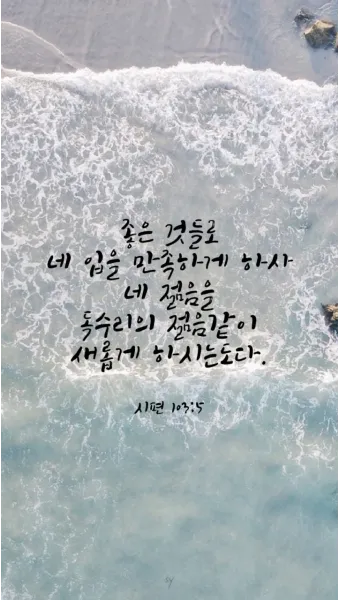 좋은 것들로
네 입을 만족하게 하사
네 젊음을
독수리의 젊음같이
새롭게 하시는도다.
시편 103:5